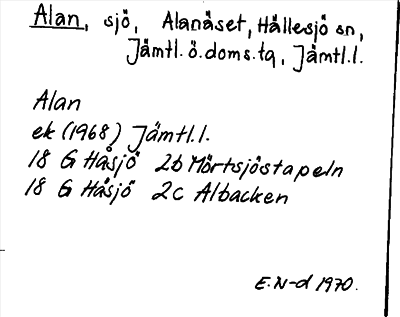 Alan, sjö, Alanäset, Hållesjö sn,
Jämtl. ö. doms.tg, Jämtl.l.
Alan
ek (1968) Jämtl.l.
18 G Håsjö 2b Mörtsjöstapeln
18 G Håsjö 2c Albacken
E. N-d 1970.